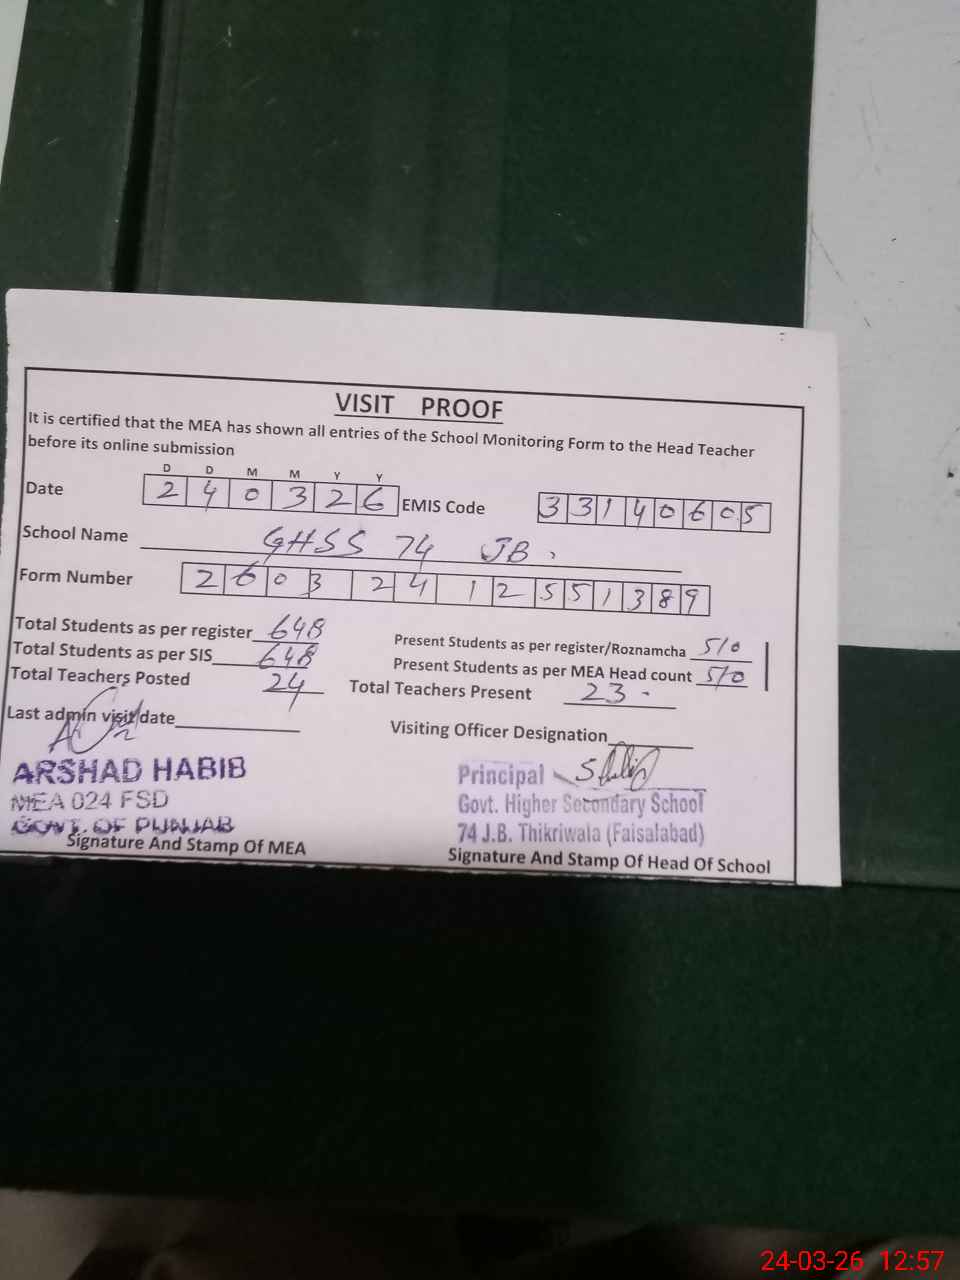 VISIT PROOF
It is certified that the MEA has shown all entries of the School Monitoring Form to the Head Teacher
before its online submission
D D M M Y Y
Date 2 4 0 3 2 6 EMIS Code 3 3 1 4 0 6 0 5
School Name GHSS 74 JB
Form Number 2 6 0 3 2 4 1 2 5 5 1 3 8 9
Total Students as per register 648 Present Students as per register/Roznamcha 510
Total Students as per SIS 648 Present Students as per MEA Head count 510
Total Teachers Posted 24 Total Teachers Present 23
Last admin visit date Visiting Officer Designation
ARSHAD HABIB
MEA 024 FSD
GOVT. OF PUNJAB
Signature And Stamp Of MEA
Principal
Govt. Higher Secondary School
74 J.B. Thikriwala (Faisalabad)
Signature And Stamp Of Head Of School
24-03-26 12:57